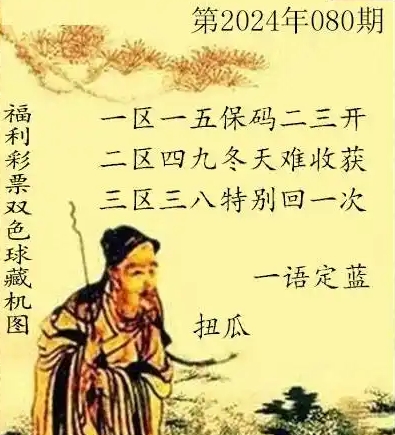 第2024年080期
福利彩票双色球藏机图
一区一五保码二三开
二区四九冬天难收获
三区三八特别回一次
一语定蓝
扭瓜